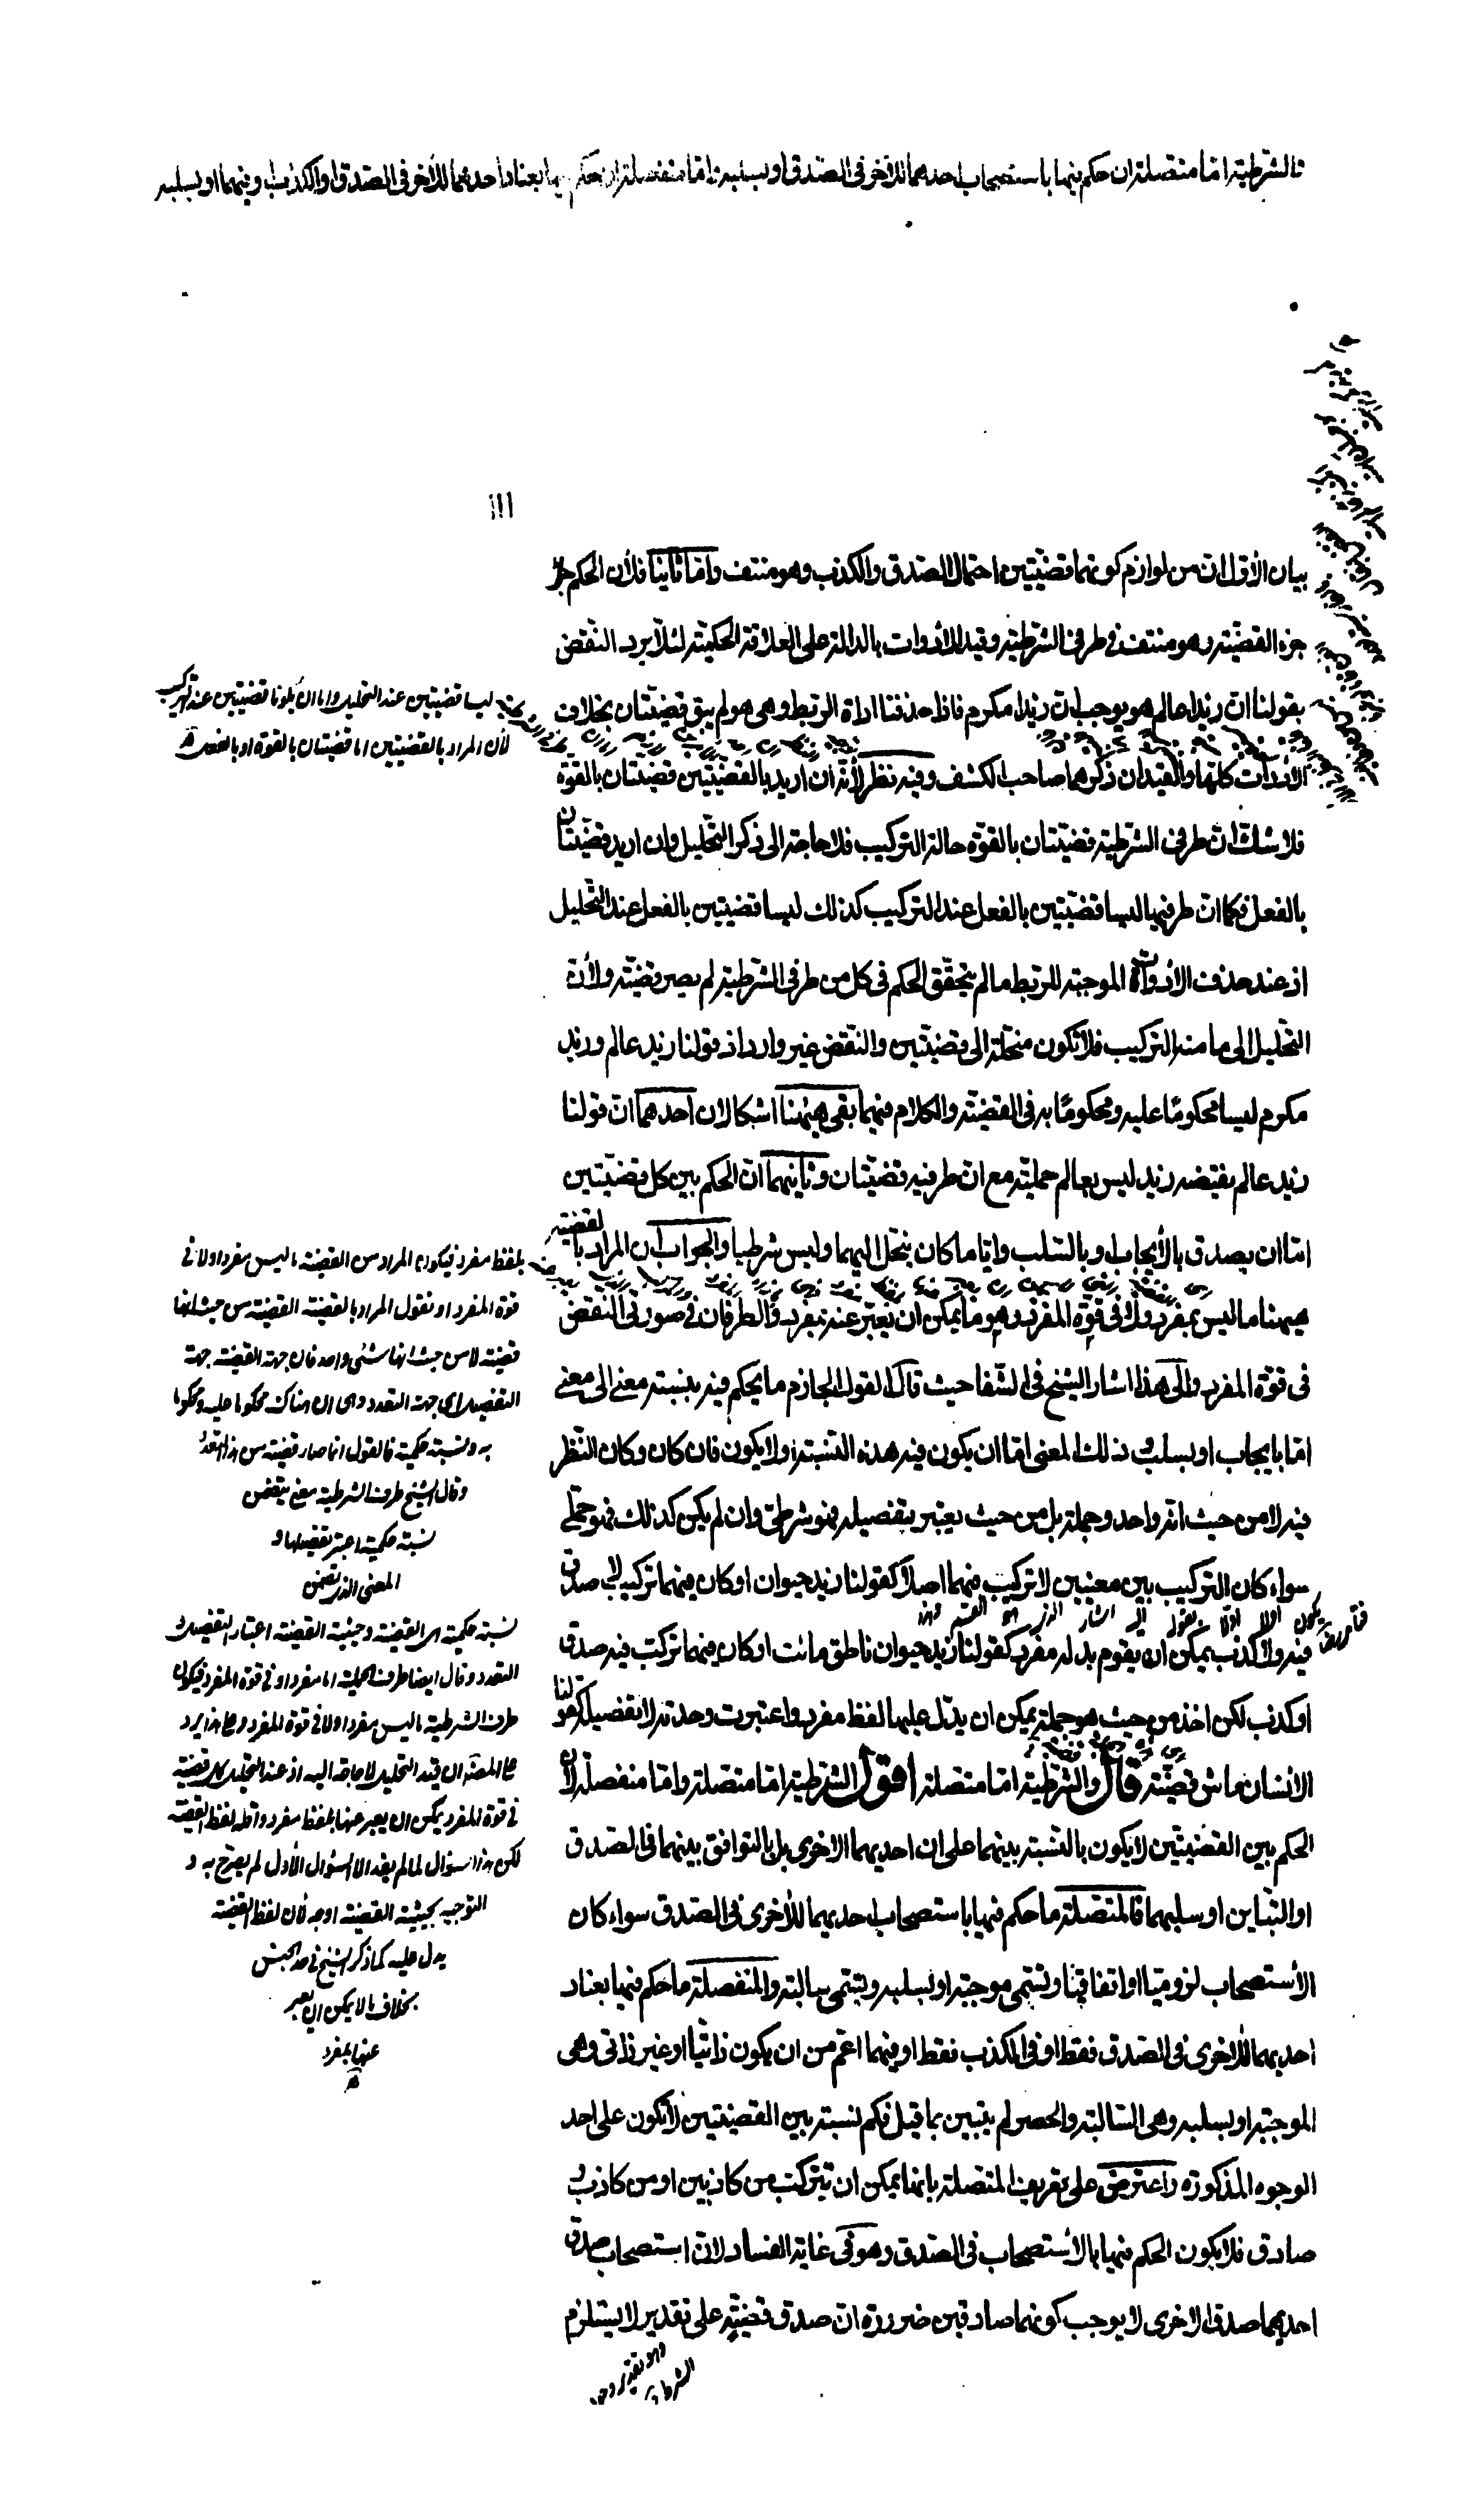 قال الشرطية اما متصلة ان حكم فيها باستصحاب احدهما للاخر فى الصدق او بسلبه واما منفصلة ان حكم فيها بعناد احدهما للاخر فى الصدق او الكذب او فيهما او بسلبه
١١١
بيان الأوّل ان من لوازم كونهما قضيّتين احتمال الصدق والكذب وهو منتف وامّا ثانيا فلأن الحكم
جزء القضيّة وهو منتف فى طرفى الشرطيّة وقيد الأدوات بالدالة على العلاقة الحكميّة لئلّا يرد النّقض
بقولنا انّ زيدا عالم هو يوجب انّ زيدا مكرم فاذا حذفنا اداة الربط وهى هو لم يبق قضيّتان بخلاف
الأدوات كلّها والقيدان ذكرهما صاحب الكشف وفيه نظر لأنّه ان اريد بالقضيّتين قضيّتان بالقوّة
فلا شك انّ طرفى الشرطية قضيّتان بالقوّة حالة التركيب فلا حاجة الى ذكر التحليل وان اريد قضيّتان
بالفعل فكما انّ طرفيها ليسا قضيّتين بالفعل عند التركيب كذلك ليسا قضيتين بالفعل عند التّحليل
اذ عند حذف الأدوات الموجبة للربط ما لم يتحقّق الحكم فى كل من طرفى الشرطية لم يصر قضيّة ولأنّ
التحليل الى ما منه التركيب فلا تكون منحلّة الى قضيّتين والنّقض غير وارد اذ قولنا زيد عالم وزيد
مكرم ليسا محكومًا عليه ومحكومًا به فى القضيّة والكلام فيهما بقى هيهنا اشكالان احدهما انّ قولنا
زيد عالم نقيضه زيد ليس بعالم حمليّة مع ان طرفيه قضيّتان وثانيهما انّ الحكم بين كل قضيّتين
امّا ان يصدق بالأيجاب او بالسّلب وايّا ما كان ينحلّ اليهما وليس شرطيا والجواب ان المراد بالقضية
هيهنا ما ليس بمفرد ولا فى قوة المفرد وهو ما يمكن ان يعبّر عنه بمفرد والطرفان فى صورتى النّقض
فى قوّة المفرد والى هذا اشار الشيخ فى الشّفا حيث قال القول الجازم ما يحكم فيه بنسبة معنى الى معنى
امّا بايجاب او بسلب وذلك المعنى امّا ان يكون فيه هذه النّسبة او لا يكون فان كان وكان النّظر
فيه لا من حيث انّه واحد وجملة بل من حيث يعتبر بتفصيله فهو شرطىّ وان لم يكن كذلك فهو حملى
سواء كان التركيب بين معنيين لا تركيب فيهما اصلا كقولنا زيد حيوان او كان فيهما تركيب لا صدق
فيه ولا كذب يمكن ان يقوم بدله مفرد كقولنا زيد حيوان ناطق مائت او كان فيهما تركيب فيه صدق
او كذب لكن اخذ من حيث هو جملة يمكن ان يدلّ عليها لفظ مفرد واعتبرت وحدته لا تفصيله كقولنا
الأنسان ماش قضيّة قال والشرطية امّا متصلة اقول الشرطية امّا متصلة وامّا منفصلة لان
الحكم بين القضيّتين لا يكون بالنّسبة بينهما على ان احديهما الاخرى بل بالتوافق بينهما فى الصدق
او التّباين او سلبهما فالمتصلة ما حكم فيها باستصحاب احديهما للأخرى فى الصدق سواء كان
الأستصحاب لزوميّا او اتفاقيّا وتسمّى موجبة او بسلبه وتسمّى سالبة والمنفصلة ما حكم فيها بعناد
احديهما للاخرى فى الصدق فقط او فى الكذب فقط او فيهما اعمّ من ان يكون ذاتيّا او غير ذاتى وهى
الموجبة او بسلبه وهى السّالبة والحصر لم يتبيّن بما قيل فكم نسبة بين القضيّتين لا تكون على احد
الوجوه المذكورة واعترض على تعريف المتصلة بانها يمكن ان تتركّب من كاذبين او من كاذب و
صادق فلا يكون الحكم فيها بالأستصحاب فى الصدق وهو فى غاية الفساد لانّ استصحاب صدق
احديهما صدق الاخرى لا يوجب كونهما صادقين ضرورة انّ صدق قضيّة على تقدير لا يستلزم
ليسا قضيتين عند التحليل واما ان يكونا قضيتين عند التركيب
لأن المراد بالقضيتين اما قضيتان بالقوة او بالفعل
بلفظ مفرد فيكون المراد من القضية ما ليس مفردا ولا فى
قوة المفرد او نقول المراد بالقضية القضية من حيث انها
قضية لا من حيث انها شئ واحد فان جهة القضية جهة
التفصيل اى جهة التعدد وهى ان هناك محكوما عليه ومحكوما
به ونسبة حكمية فالقول انما صار قضية من هذا التعدد
وقال الشيخ طرف الشرطية معنى يتضمن
نسبة حكمية اعتبر تفصيلها و
المعنى الذى يتضمن
نسبة حكمية هى القضية وحيثية القضية اعتبار التفصيل و
التعدد وقال ايضا طرف الحملية اما مفرد او فى قوة المفرد فيكون
طرف الشرطية ما ليس مفردا ولا فى قوة المفرد وعلى هذا يرد
على المصنف ان قيد التحليل لا حاجة اليه اذ عند التحليل كل قضية
فى قوة المفرد يمكن ان يعبر عنها بلفظ مفرد واقله لفظ القضية
لكن هذا السؤال لما لم يفد الا السؤال الأول لم يصرح به و
التوجيه بحيثية القضية اوجه لأن لفظ القضية
يدل عليه كما ذكر الشيخ فى حد الجنس
بخلاف ما لا يمكن ان يعبر
عنها بمفرد